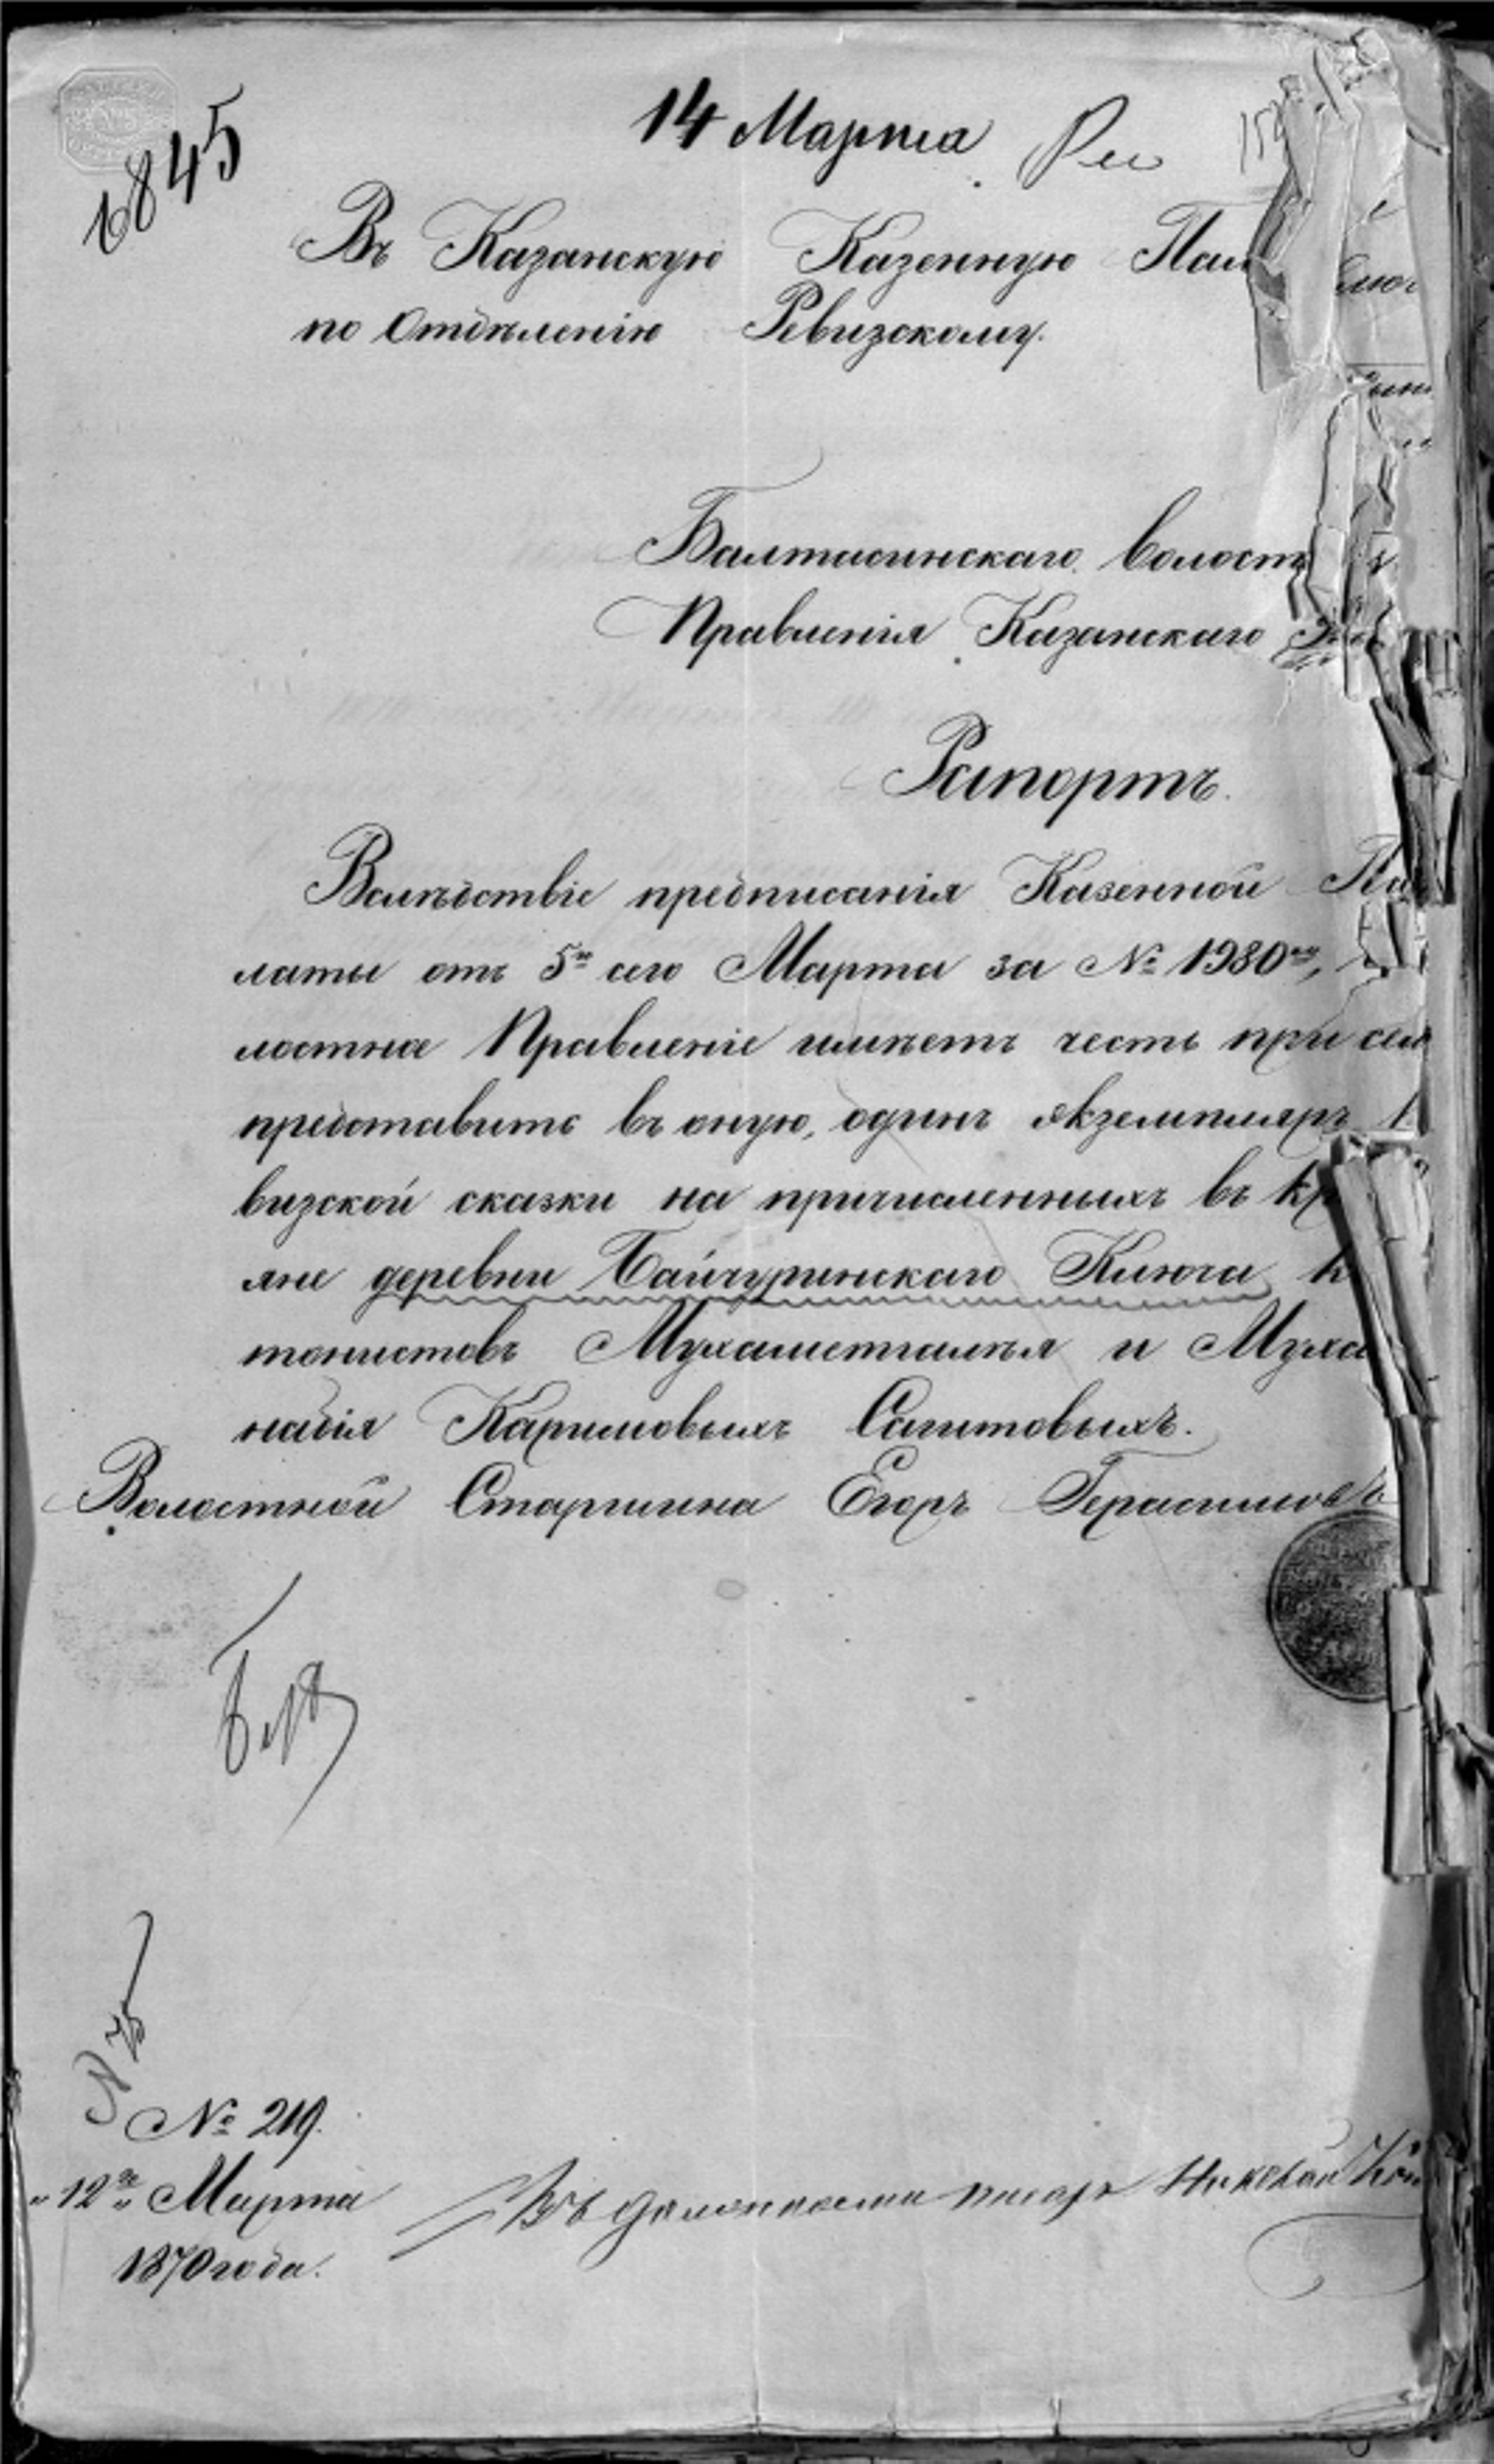 6845
14 Марта
Въ Казанскую Казенную Пал
по Отдѣленію Ревизскому.
Балтасинскаго Волост
Правленія Казанскаго
Рапортъ.
Вслѣдствіе предписанія Казенной Па
латы отъ 5го сего Марта за № 1980мъ,
лостное Правленіе имѣетъ честь при сем
представить въ оную, одинъ экземпляръ
визской сказки на причисленныхъ въ кр
яне деревни Байчуринскаго Кинога к
тонистовъ Мухаметгалѣя и Муха
набія Каримовыхъ Сагитовыхъ.
Волостной Старшина Егоръ Герасимовъ
№ 219.
"12го" Марта
1870 года.
Въ должности писаря Николай